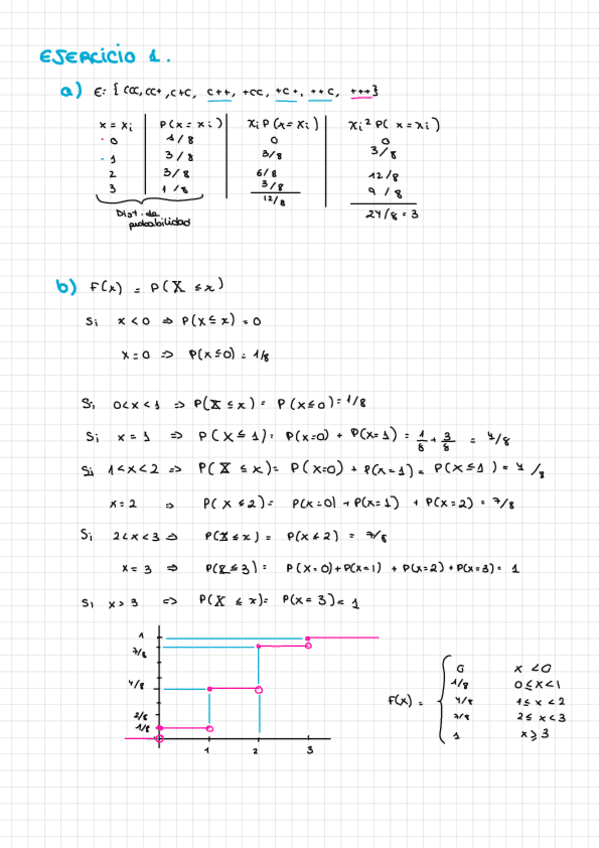 EJERCICIO 1.
a) E: { CCC, CC+, C+C, C++, +CC, +C+, ++C, +++}
x = xi P(x = xi) xi P(x = xi) xi² P( x = xi)
0 1/8 0 0
1 3/8 3/8 3/8
2 3/8 6/8 12/8
3 1/8 3/8 9/8
12/8 24/8 = 3
Dist. de
probabilidad
b) F(x) = P(X ≤ x)
Si x < 0 ⇒ P(x ≤ x) = 0
x = 0 ⇒ P(x ≤ 0) = 1/8
Si 0 < x < 1 ⇒ P(X ≤ x) = P(x ≤ 0) = 1/8
Si x = 1 ⇒ P(X ≤ 1) = P(x=0) + P(x=1) = 1/8 + 3/8 = 4/8
Si 1 < x < 2 ⇒ P(X ≤ x) = P(x=0) + P(x=1) = P(x ≤ 1) = 4/8
x = 2 ⇒ P(x ≤ 2) = P(x=0) + P(x=1) + P(x=2) = 7/8
Si 2 < x < 3 ⇒ P(X ≤ x) = P(x ≤ 2) = 7/8
x = 3 ⇒ P(X ≤ 3) = P(x=0) + P(x=1) + P(x=2) + P(x=3) = 1
Si x > 3 ⇒ P(X ≤ x) = P(x = 3) = 1
1
7/8
4/8
2/8
1/8
1 2 3
F(x) =
0 x < 0
1/8 0 ≤ x < 1
4/8 1 ≤ x < 2
7/8 2 ≤ x < 3
1 x ≥ 3